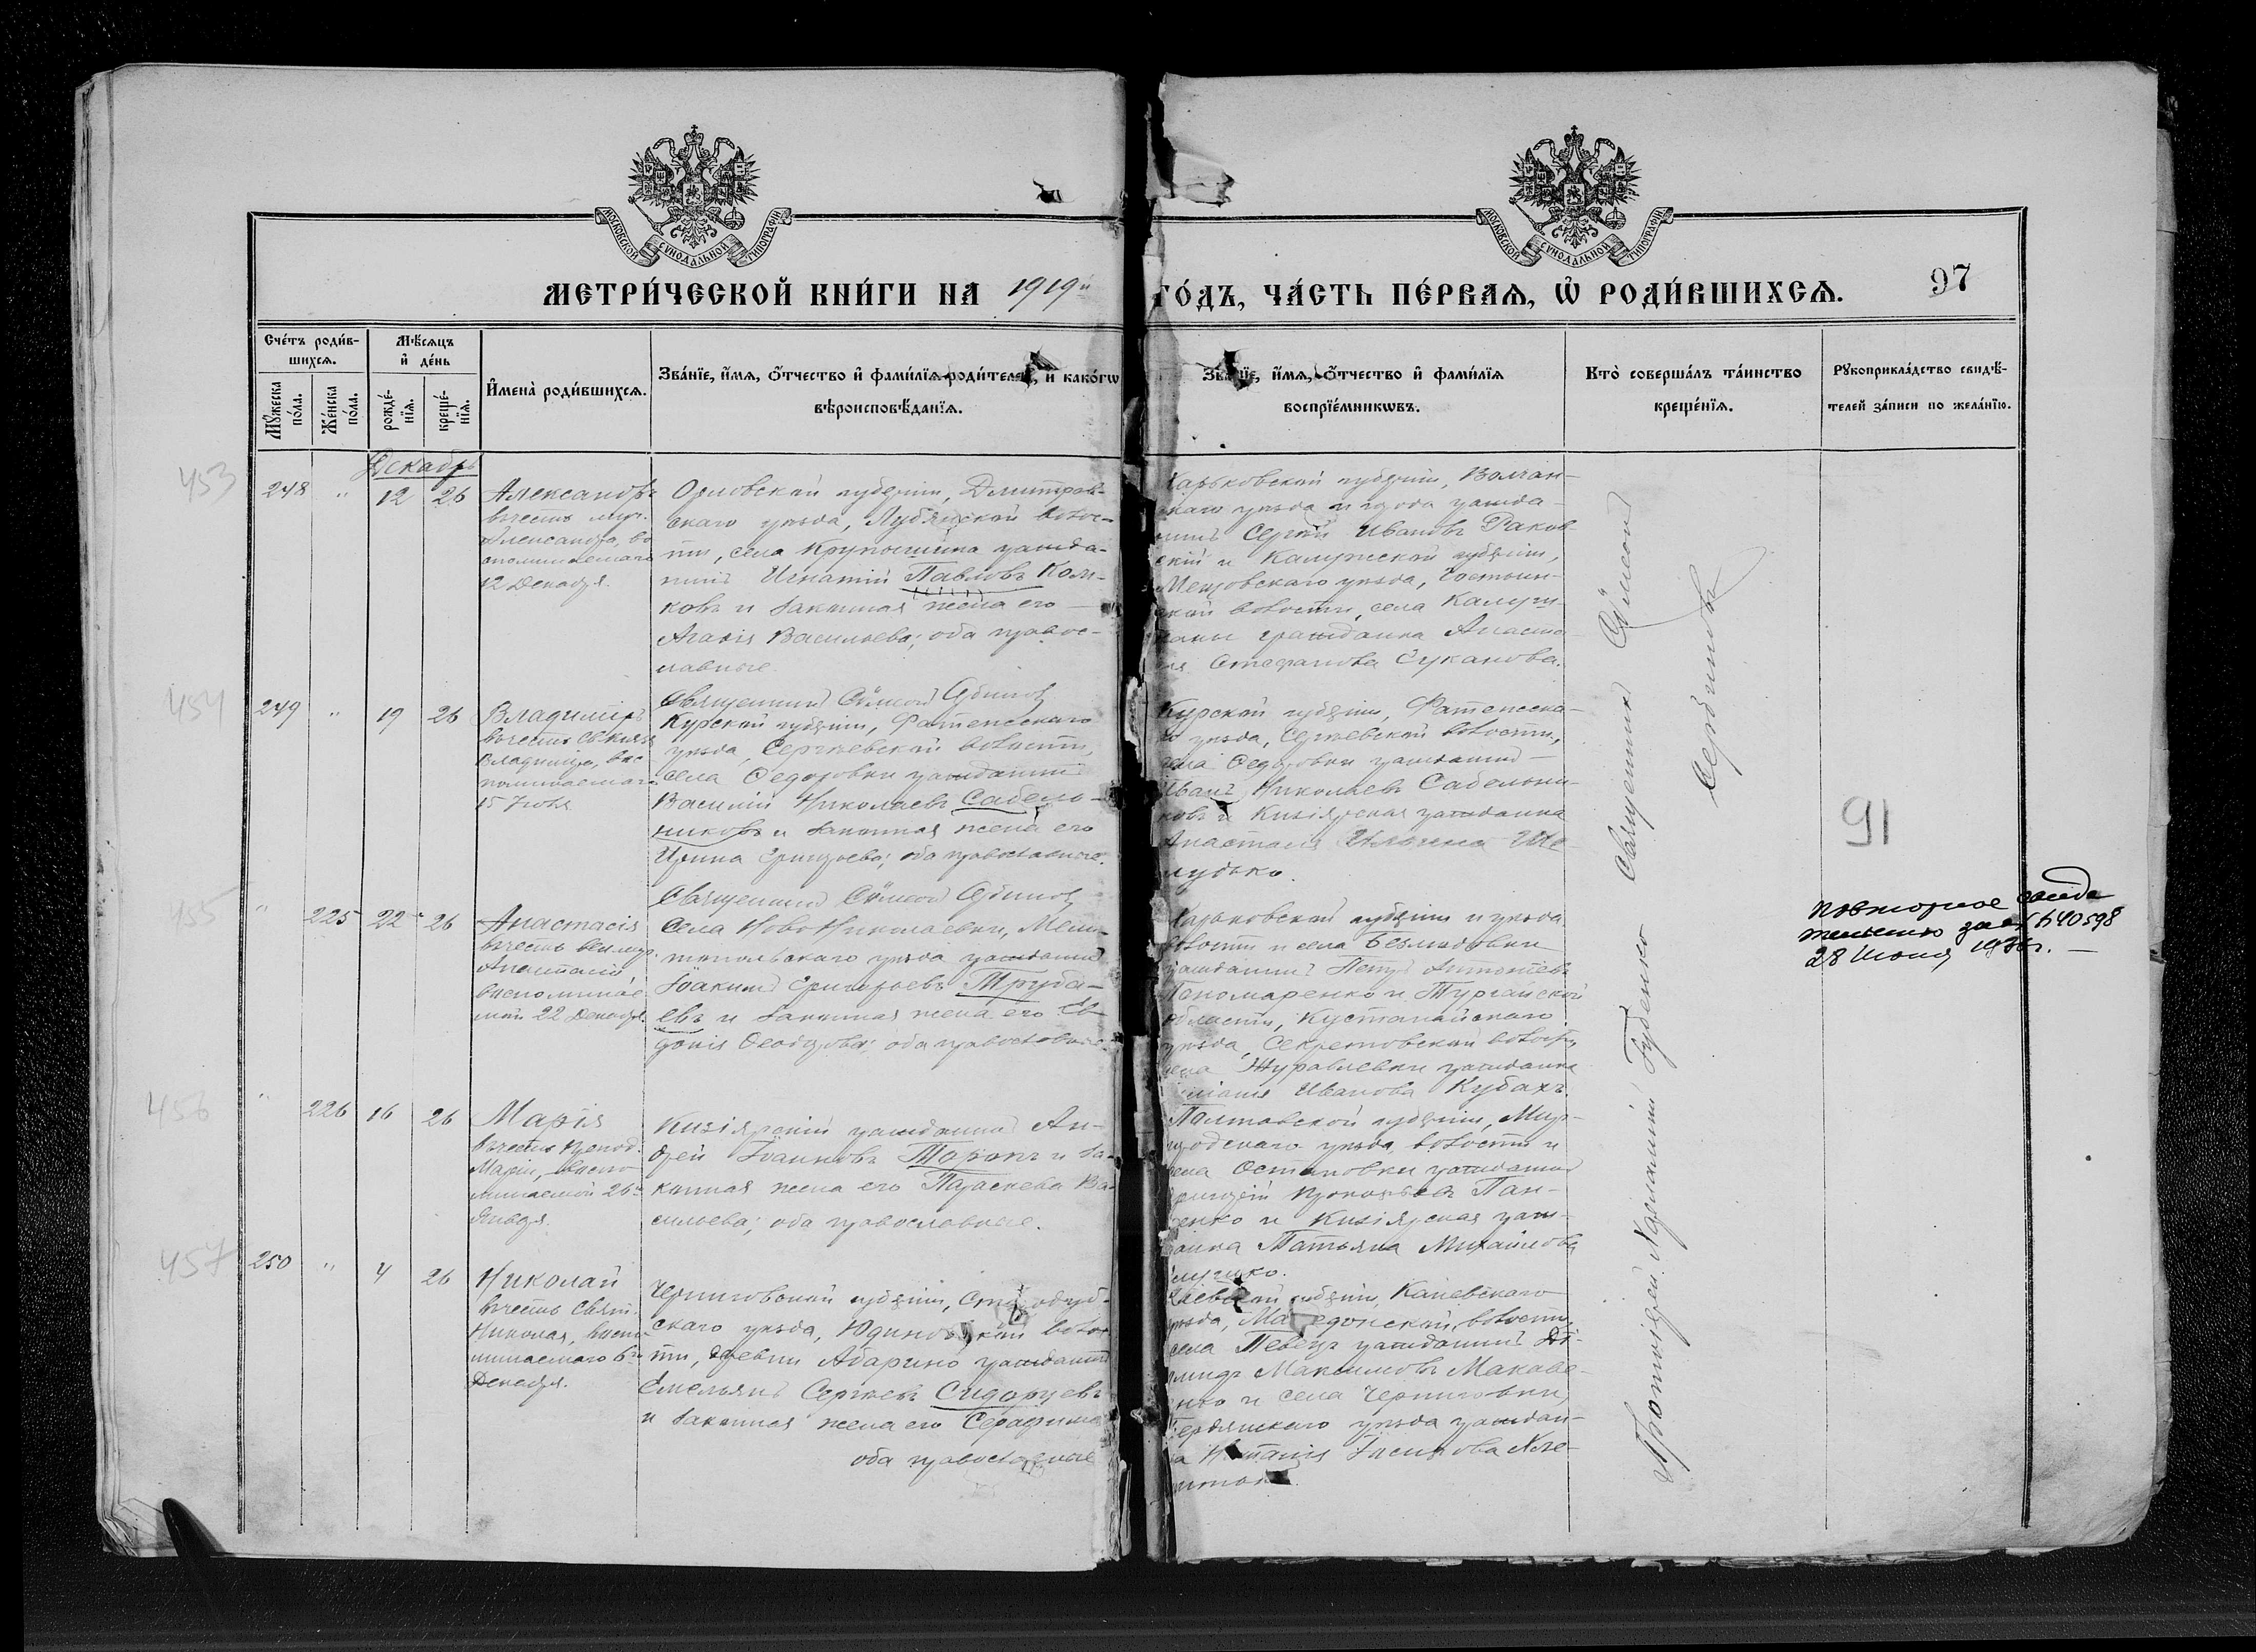 МОСКОВСКОЙ СѴНОДАЛЬНОЙ ТИПОГРАФІИ
МОСКОВСКОЙ СѴНОДАЛЬНОЙ ТИПОГРАФІИ
МЕТРИ́ЧЕСКОЙ КНИ́ГИ НА 1919й
ГО́ДЪ, ЧА́СТЬ ПЕ́РВАѦ, Ѡ РОДИ́ВШИХСѦ.
97
Сче́тъ роди́в-
шихсѧ.
Мꙋжеска
по́ла.
Же́нска
по́ла.
Мѣ́сѧцъ
и҆ де́нь
рожде́-
нїѧ.
креще́-
нїѧ.
И҆мена̀ роди́вшихсѧ.
Зва́нїе, и҆́мѧ, о҆́тчество и҆ фами́лїѧ роди́телей, и҆ како́гѡ
вѣроисповѣ́данїѧ.
Зва́нїе, и҆́мѧ, о҆́тчество и҆ фами́лїѧ
воспрїе́мникѡвъ.
Кто̀ соверша́лъ та́инство
креще́нїѧ.
Рꙋкоприкла́дство свидѣ́-
телей за́писи по жела́нїю.
Декабрь
453
248 " 12 26
Александръ
въ честь муч.
Александра, во
споминаемаго
12 Декабря.
Орловской губерніи, Дмитров-
скаго уѣзда, волос-
ти, села гражда-
нинъ Игнатій Павловъ Ком-
ковъ и законная жена его
Агафія Васильева; оба правос-
лавные.
Священникъ Сѵмеонъ
Харьковской губерніи, Волчан-
скаго уѣзда и города гражда-
нинъ Сергѣй Ивановъ Раков-
скій и Калужской губерніи,
Мещовскаго уѣзда,
ской волости, села
гражданка Анаста-
ія Стефанова Суканова.
454
249 " 19 26
Владиміръ
въ честь Св. князя
Владиміра, вос
поминаемаго
15 Іюля
Курской губерніи, Фатежскаго
уѣзда, Сергѣевской волости,
села Федоровки гражданинъ
Василій Николаевъ Сабель-
никовъ и законная жена его
Ирина Григорьева; оба православные.
Священникъ Сѵмеонъ
Курской губерніи, Фатежска-
го уѣзда, Сергѣевской волости,
села Федоровки гражданинъ
Иванъ Николаевъ Сабельни-
ковъ и Кизіярская гражданка
Анастасія Ильина Ше-
лудько.
455
" 225 22 26
Анастасія
въ честь вел. муч.
Анастасіи,
воспоминае
мой 22 Декабря.
Села Ново Николаевки, Мели-
топольскаго уѣзда гражданинъ
Іоакимъ Григорьевъ Труба-
евъ и законная жена его Ев-
докія Ѳеодорова; оба православные.
Харьковской губерніи и уѣзда
волости и села Безлюдовки
гражданинъ Петръ Антоніевъ
Пономаренко и Тургайской
области, Кустанайскаго
уѣзда, волости,
села Журавлевки гражданка
Иванова Кубахъ.
повторное свиде
тельство за № 640598
28 Июня 1936 г.
91
456
" 226 16 26
Марія
въ честь препод.
Маріи, воспо
минаемой 26го
Января.
Кизіярскій гражданинъ Ан-
дрей Іоанновъ Таранъ и за-
конная жена его Параскева Ва-
сильева; оба православные.
Полтавской губерніи, Мир-
городскаго уѣзда, волости и
села Остаповки гражданинъ
Григорій Прокопьевъ Пан-
ченко и Кизіярская граж-
данка Татьяна Михайлова
457
250 " 4 26
Николай
въ честь Свят.
Николая, воспо-
минаемаго 6го
Декабря.
Черниговской губерніи, Стародуб-
скаго уѣзда, Юдиновской волос-
ти, деревни Абарино гражданинъ
Емельянъ Сергѣевъ Сидорцевъ
и законная жена его Серафима
оба православные
Кіевской губерніи, Каневскаго
уѣзда, Македонской волости,
села гражданинъ
Максимовъ Макаве-
нко и села Черниговки,
Бердянскаго уѣзда граждан-
ка Наталія
Протоіерей Губенко Священникъ Сѵмеонъ